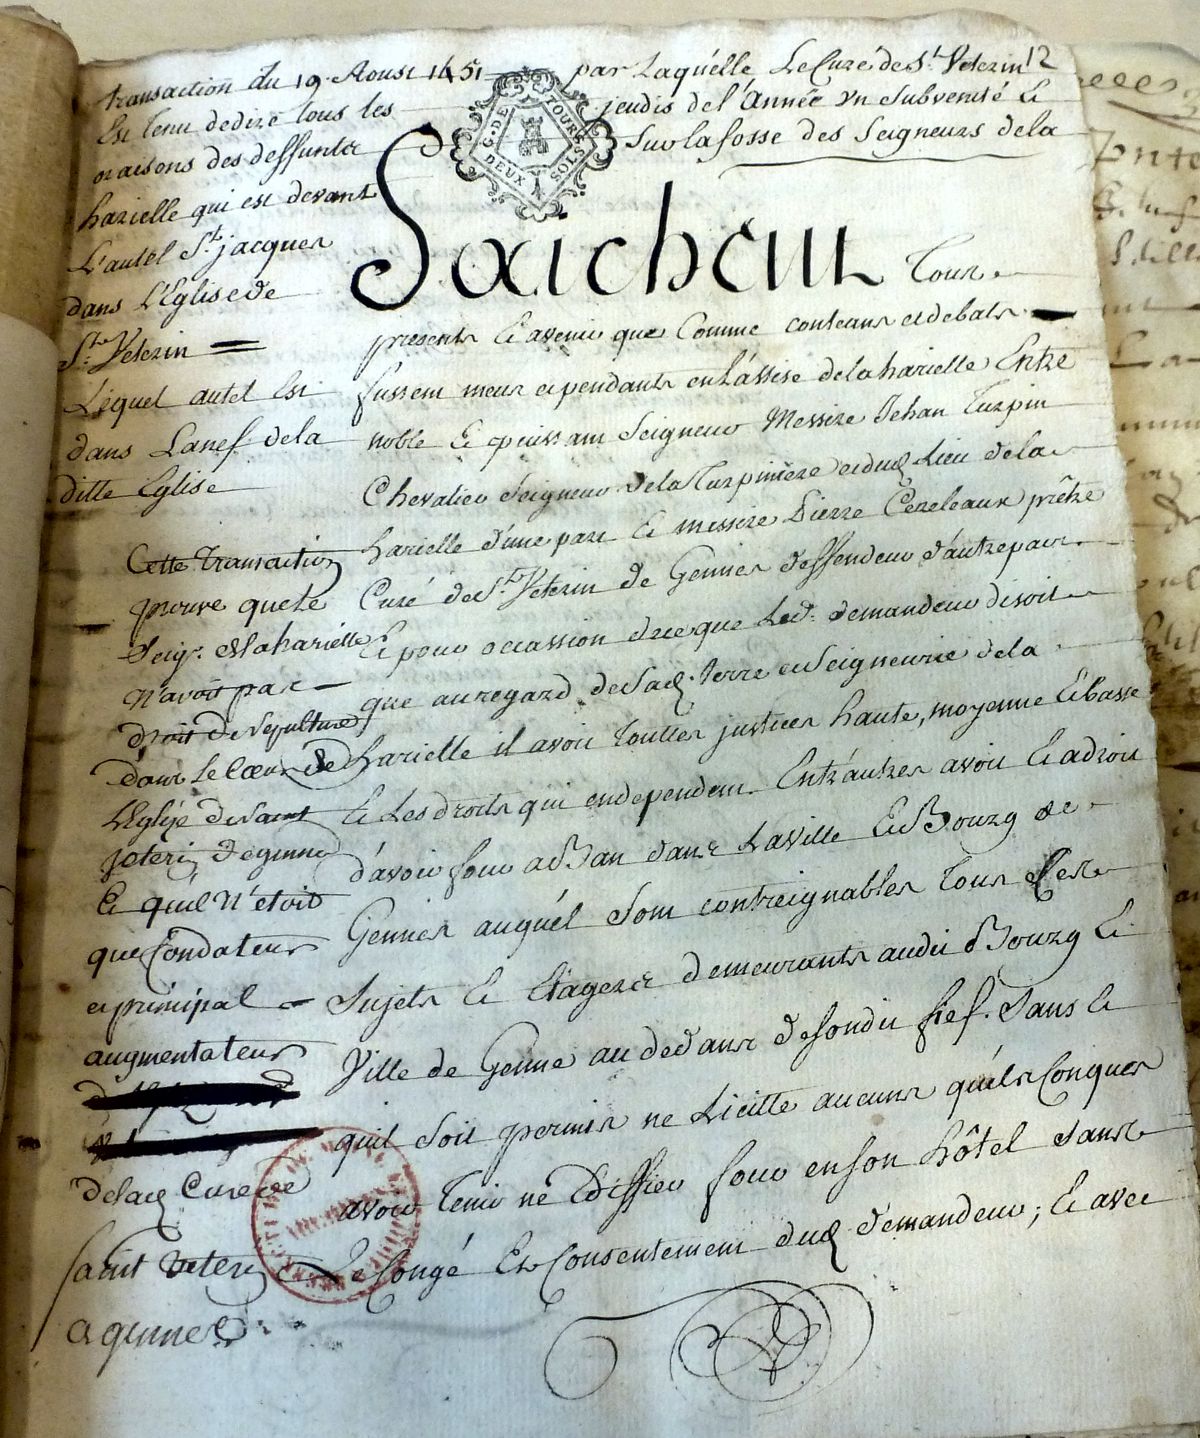 transaction du 19 Aoust 1451 par Laquelle Le Curé de St. Veterin 12
Est Tenu de dire tous les jeudis de l'Année Un Subvenité Et
oraisons des deffunts Sur la fosse des Seigneurs de la
harielle qui est devant
L'autel St. jacques
dans L'Eglise de
St. Veterin
Lequel autel Est
dans La nef de la
ditte Eglise
G. DE TOURS
DEUX SOLS
Saichent Tous
presents Et avenir que Comme contens et debats
fussent meus et pendants en L'assise de la harielle Entre
noble Et puissant Seigneur Messire Jehan Turpin
Chevalier Seigneur de la Turpiniere et dud Lieu de la
harielle d'une part Et messire Pierre Cereleaux prêtre
Curé de St. Veterin de Gennes deffendeur d'autre part
Et pour occassion de ce que Led. demandeur disoit
que au regard de sad. Terre et Seigneurie de la
harielle il avoit Touttes justices haute, moyenne Et basse
Et Les droits qui en dependent. Entr'autres avoit Et a droit
d'avoir four a Ban dans La Ville Et Bourg de
Gennes auquel Sont contreignables Tous Ses
Sujets Et Etagers demeurants audit Bourg Et
Ville de Genne au dedans de sondit fief. Sans Ce
quil Soit permis ne Licitte aucuns quels Conques
avoir Tenir ne Ediffier four en son hôtel Sans
Le Congé Et Consentement dud demandeur; Et avec
Cette Transaction
prouve que le
Seigr. de la harielle
N'avoit pas
droit de Sepulture
dans Le Cœur de
L'Eglise de Saint
Veterin de genne
Et quil N'étoit
que fondateur
et principal
augmentateur
de lad Cure de
Saint Veterin
a gennes